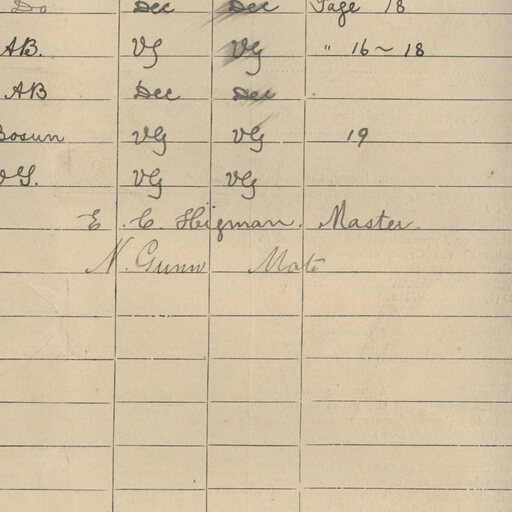 Do Dec Dec Page 18
AB. VG VG " 16~18
AB Dec Dec
Bosun VG VG 19
VG VG
E. C. Higman. Master.
N. Gunn Mate